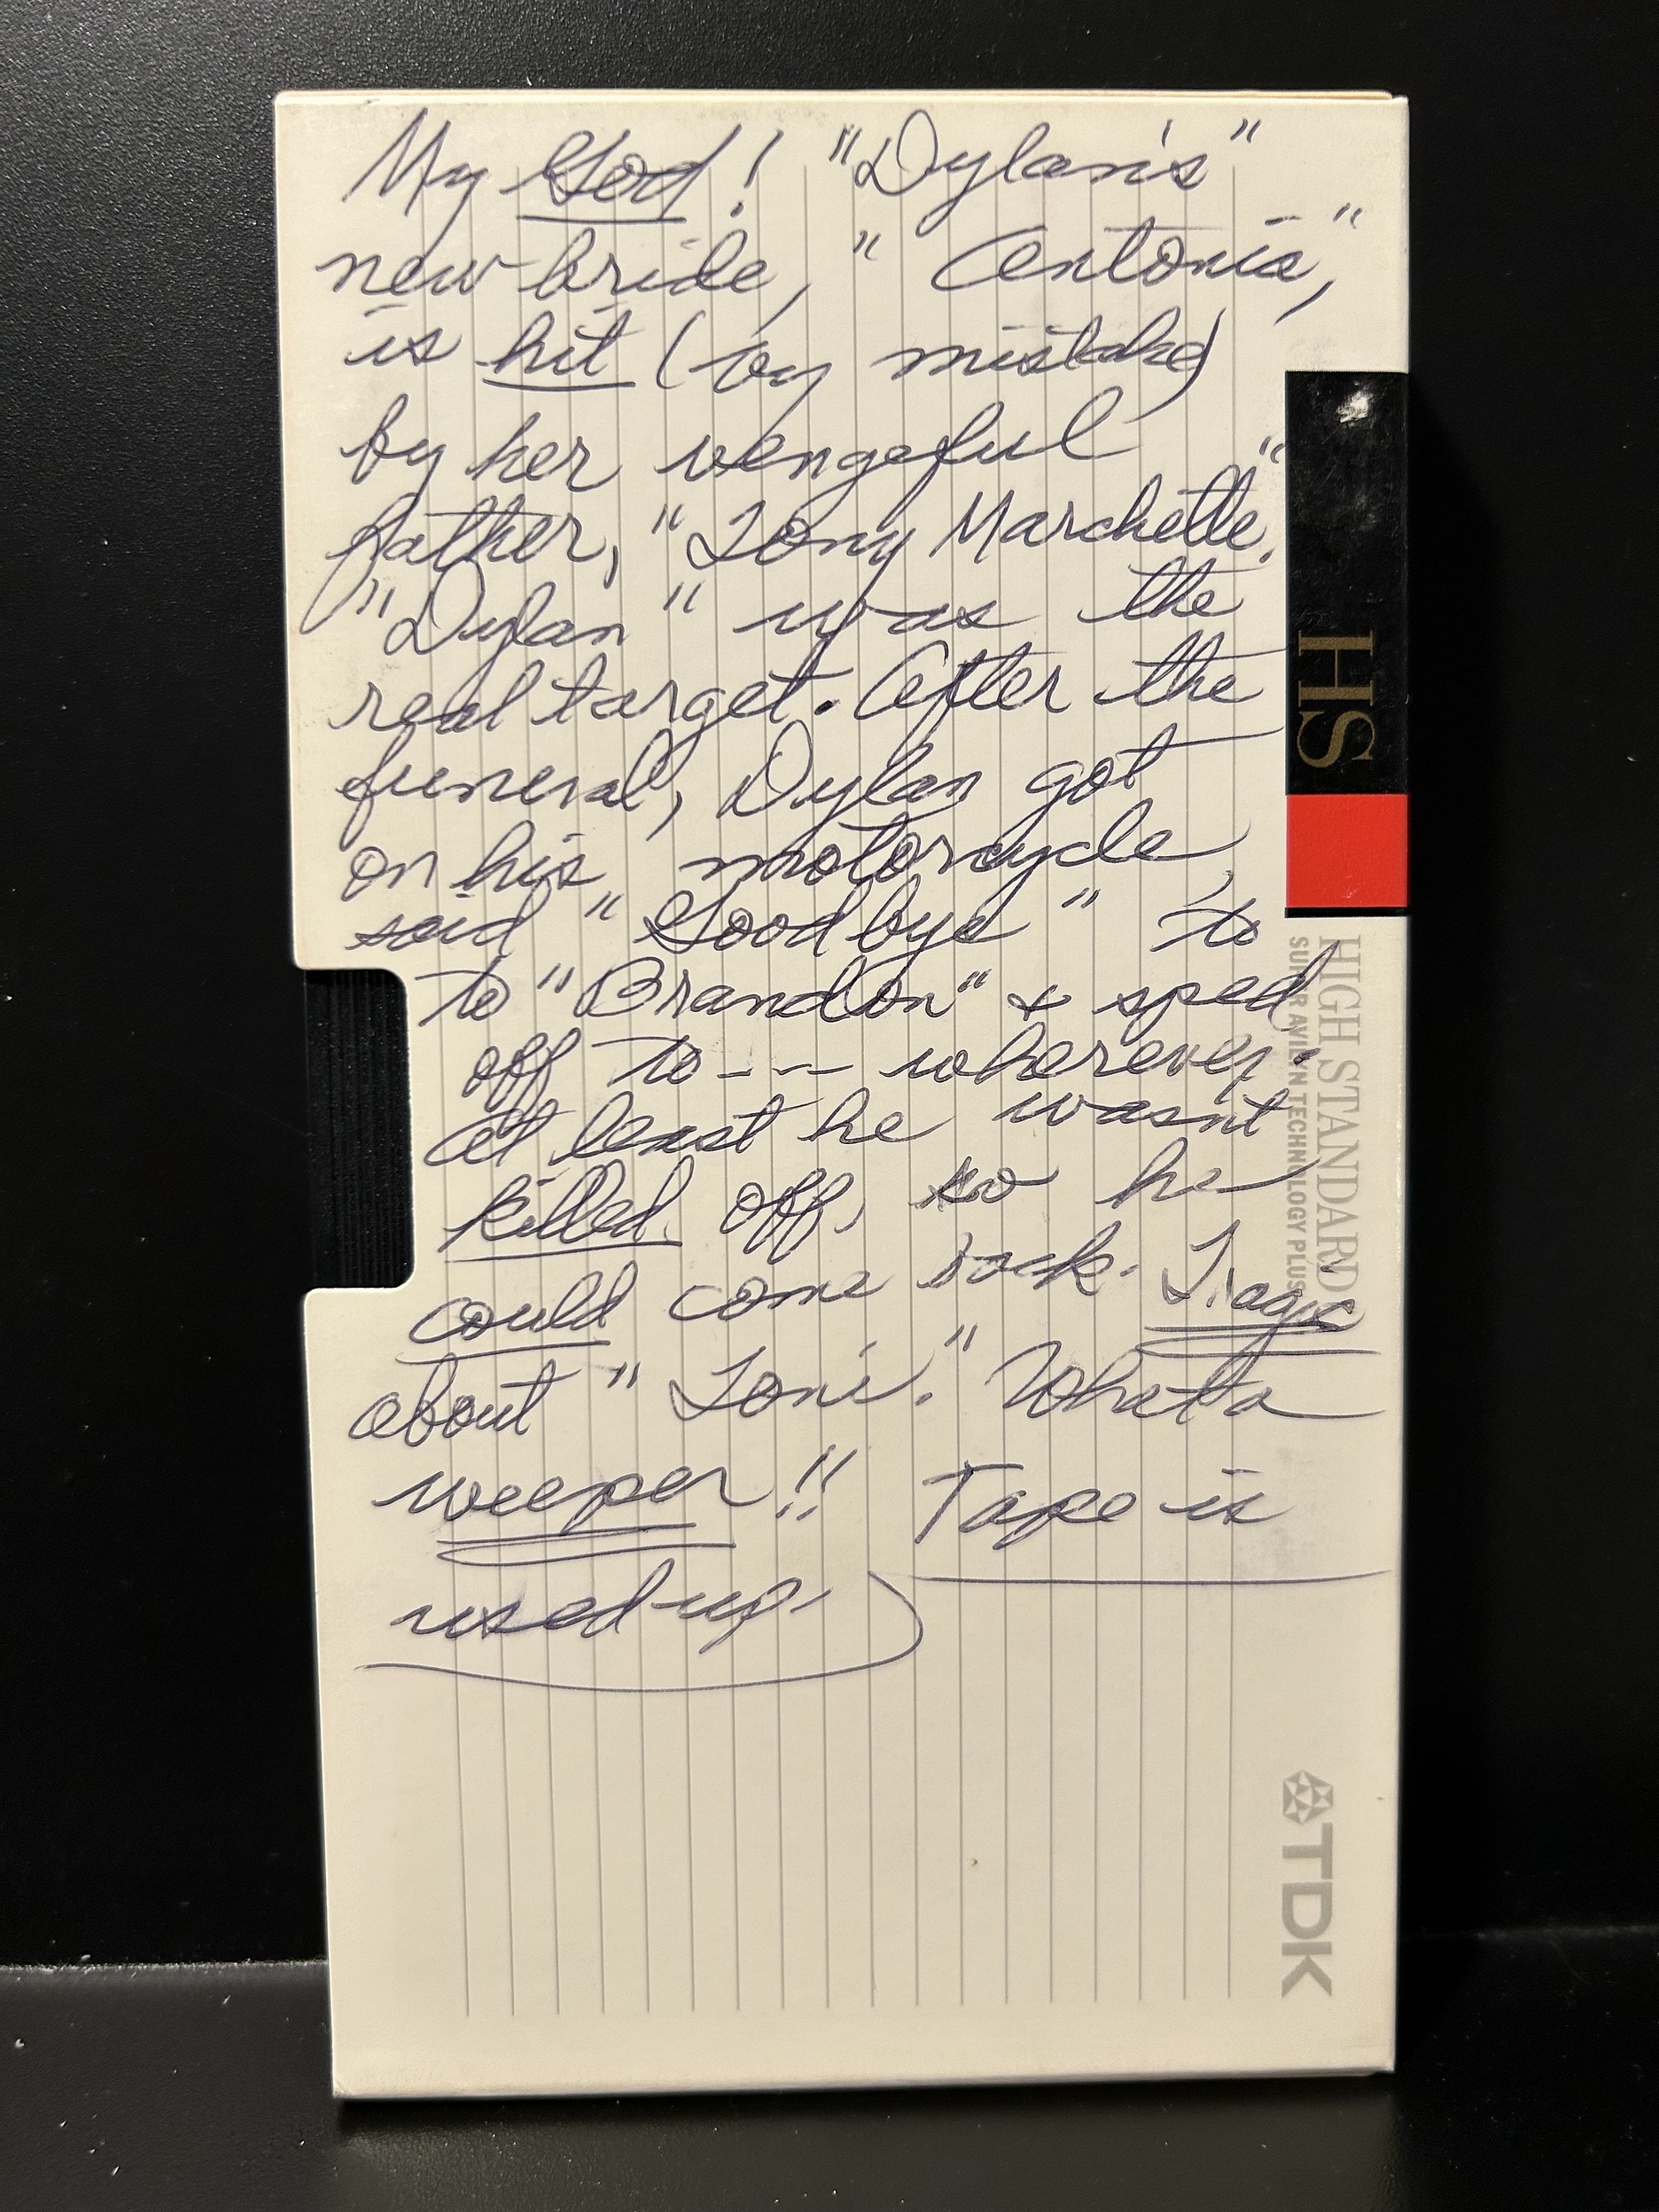 My God! "Dylan's"
new bride, "Antonia,"
is hit (by mistake)
by her vengeful
father, "Tony Marchette."
"Dylan" was the
real target. After the
funeral, Dylan got
on his motorcycle,
said "Goodbye" to
to "Brandon" & sped
off to --- wherever.
At least he wasn't
killed off, so he
could come back. Tragic
about "Toni." What a
weeper!! Tape is
used up.
HS
HIGH STANDARD
SUPER AVILYN TECHNOLOGY PLUS
TDK